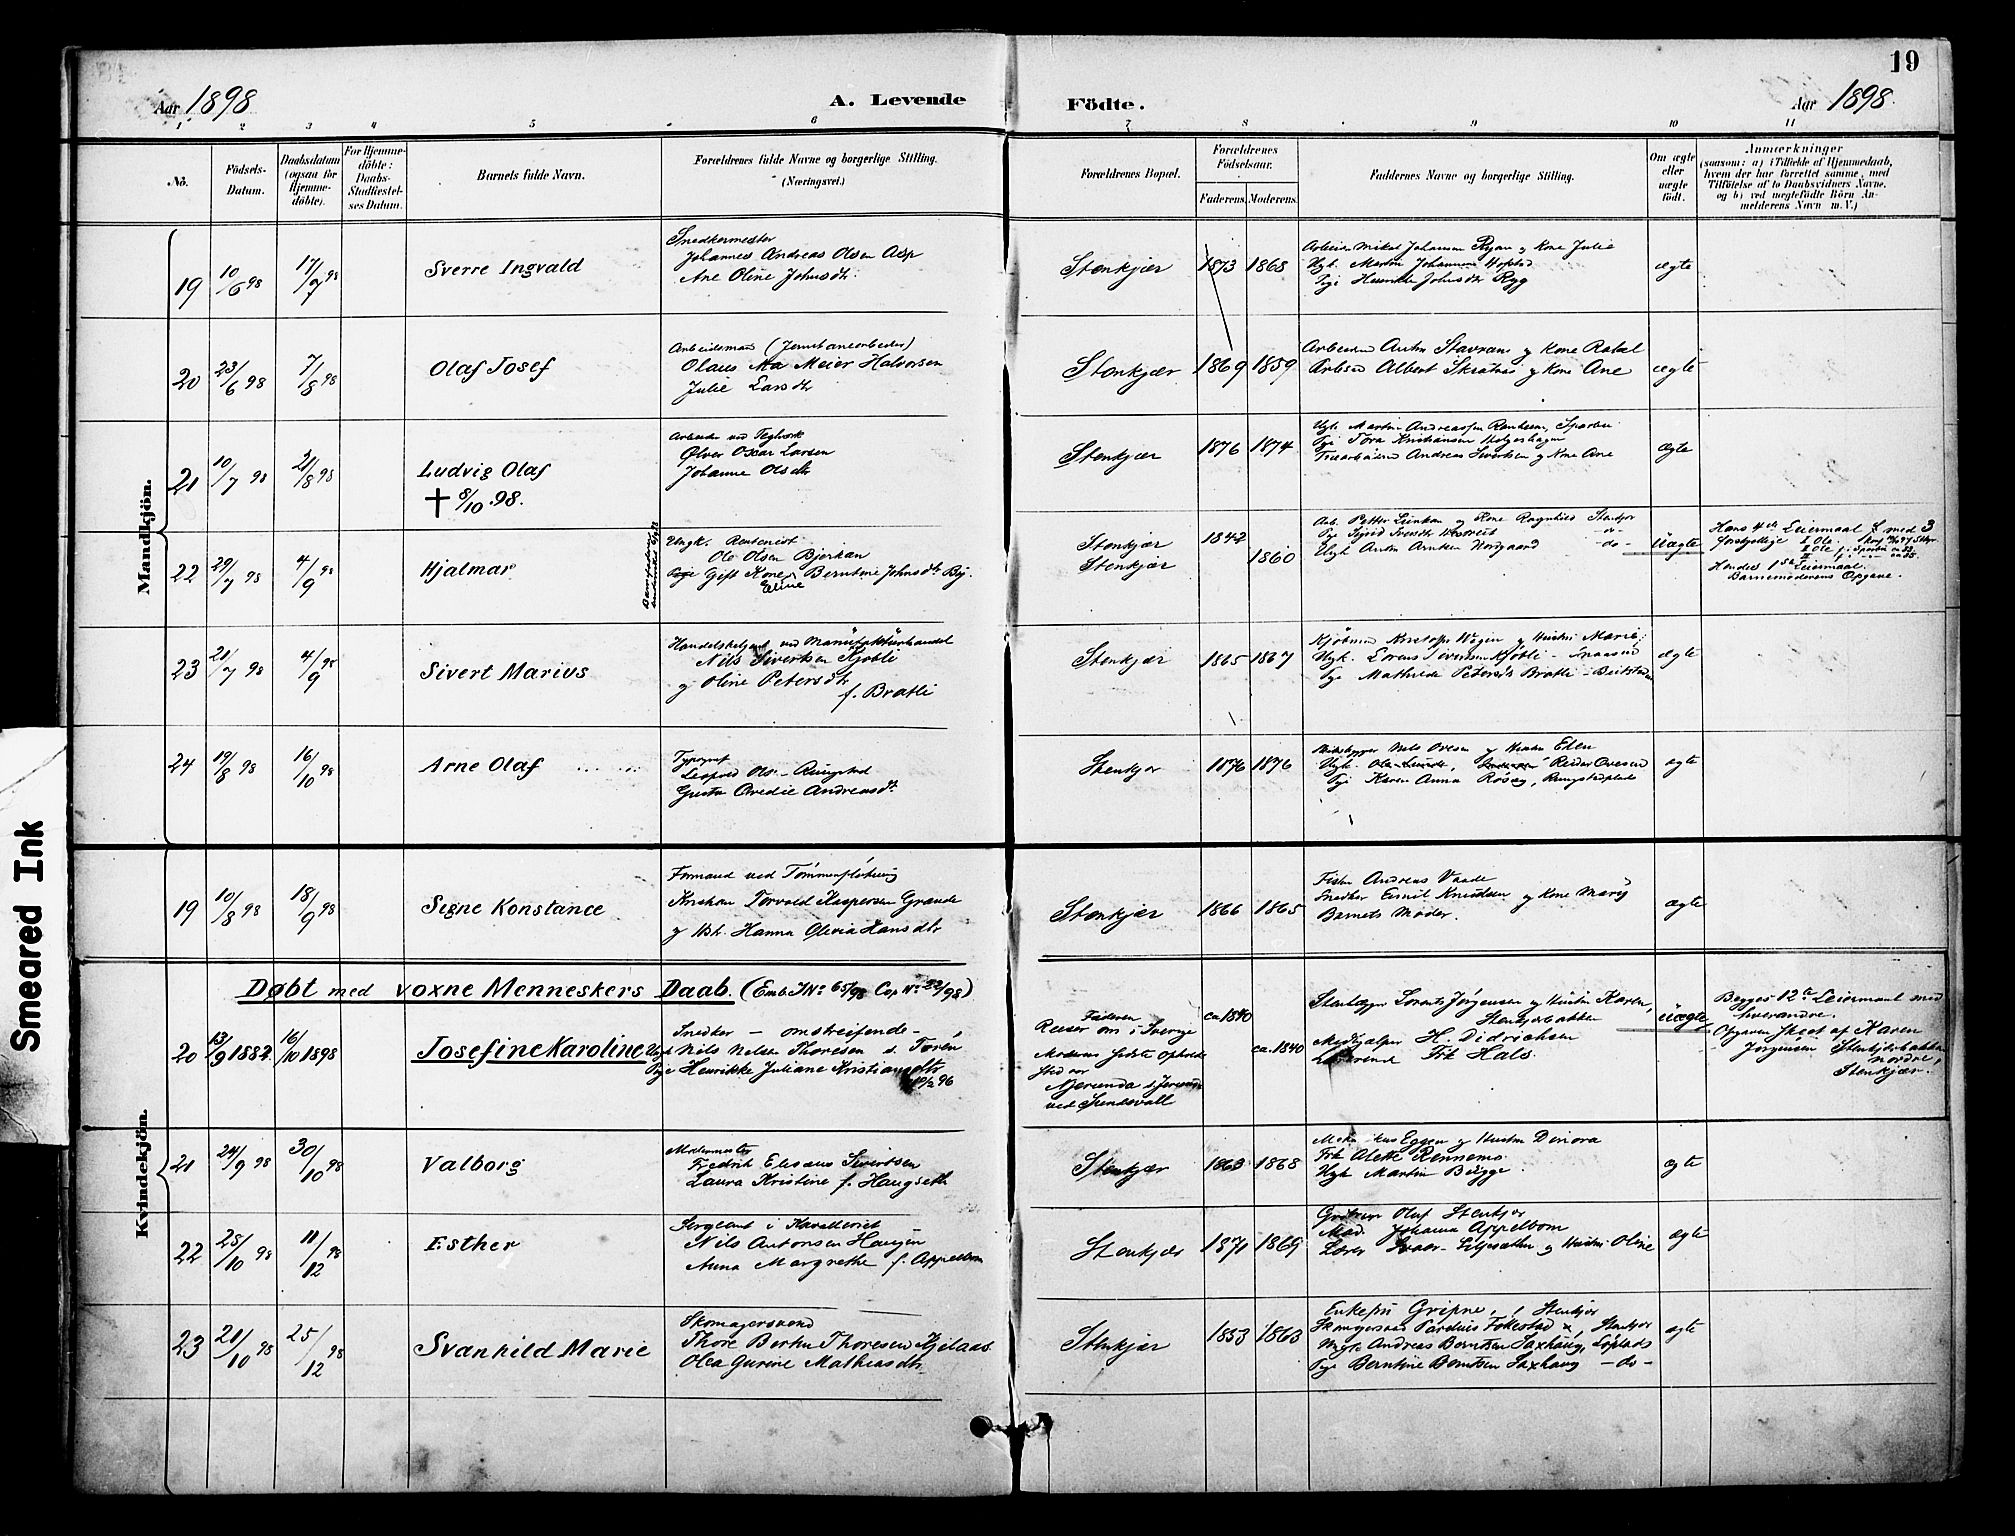 19
Aar 1898.
A. Levende
Födte.
Aar 1898.
1 2 3 4 5 6 7 8 9 10 11
No.
Födsels-Datum.
Daabsdatum (ogsaa for Hjemme-döbte).
For Hjemme-döbte: Daabs-Stadfæstel-ses Datum.
Barnets fulde Navn.
Forældrenes fulde Navne og borgerlige Stilling.
(Næringsvei.)
Forældrenes Bopæl.
Forældrenes Födselsaar.
Faderens. Moderens.
Faddernes Navne og borgerlige Stilling.
Om ægte eller uægte födt.
Anmærkninger
(saasom: a) i Tilfælde af Hjemmedaab,
hvem der har forrettet samme, med
Tilföielse af to Daabsvidners Navne.
og b) ved uægtefödte Börn An-
melderens Navn m. V.)
Mandkjön.
19 10/6 98 17/7 98 Sverre Ingvald
Snedkermester
Johannes Andreas Olsen Asp
Ane Oline Johnsdtr.
Stenkjær 1873 1868
Arbeider Mikal Johansen Ryan og Kone Julie
Ungk. Martin Johannesen Hofstad
Pige Johnsdtr Ryg
ægte
20 23/6 98 7/8 98 Olaf Josef
Arbeidsmand (Jernbanearbeider)
Olaus Meier Halvorsen
Julie Larsdtr
Stenkjær 1869 1859
Arbeider Anton Stavran og Kone
Arbeider Albert og Kone Ane
ægte
21 10/7 98 21/8 98 Ludvig Olaf
† 8/10 .98.
Arbeider ved Teglværk
Ølver Oskar Larsen
Johanne Olsdtr
Stenkjær 1876 1874
Ungk. Martin Andreassen Sparbu
Pige Tora Kristiansen
Andreas Sivertsen og Kone Ane
ægte
22 29/7 98 4/9 98 Hjalmar
Ungk. Rentenist
Ole Olsen Bjerkan
Pige Gift Kone Berntine Johnsdtr By.
Eline
Stenkjær
Stenkjær
1842
1860
Arb. Petter og Kone Ragnhild Stenkjær
Pige -do-
Ungk Anton Nordgaard -do-
Uægte
Hans 4de Leiermaal med 3
forskjellige I Ole.
Hendes 1ste Leiermaal.
Barnemoderens Opgave.
23 21/7 98 4/9 98 Sivert Marius
ved Manufakturhandel
Nils Sivertsen Kjøbli
og Oline Petersdtr
f. Bratli
Stenkjær 1865 1867
Kjøbmand og Hustru Marie.
Ungk. Lorens Sivertsen Kjøbli - Snaasen
Pige Mathilde Petersdtr Bratli - Beitstaden
ægte
24 19/8 98 16/10 98 Arne Olaf
Typograf
Leopold Ols. Ringstad
Andreasdtr
Stenkjær 1876 1876
Nils Ovesen og Hustru Elen
Ungk. Reidar Ovesen
Pige Karen Anna
ægte
Kvindekjön.
19 10/8 98 18/9 98 Signe Konstance
Formand ved Tømmerfløtning
Torvald Kaspersen Grande
og Hst. Hanna Olevia Hansdtr
Stenkjær 1866 1865
Fisker Andreas Vaade
Snedker Emil Knudsen og Kone Mary
Barnets Moder.
ægte
Døbt med voxne Menneskers Daab. (Emb. J No 65/98 Cop No 33/98)
20 13/9 1882 16/10 1898 Josefine Karoline
Snedker - omstreifende -
Ungk Nils Nelsen Thoresen Torén
Pige Henrikke Juliane Kristiansdtr
Faderen
Reiser om i Sverige
Moderens sidste Opholds
sted var
Njurunda
ved Sundsvall
ca 1840
ca. 1840
Lorents Jørgensen og Hustru Karen,
Stenkjærbakken
Medhjælper H. Didrichsen
Lærerinde Frk Hals.
Uægte
Begges 12te Leiermaal med
hverandre.
Opgaven af Karen
Jørgensen Stenkjærbakken
nordre,
Stenkjær.
21 24/9 98 30/10 98 Valborg
Fredrik Eliseus Sivertsen
Laura Kristine f. Haugseth
Stenkjær 1863 1868
Eggen og Hustru Dinora
Frk Alette Rennemo
Ungk Martin Bugge
ægte
22 28/10 98 11/12 98 Esther
Sergeant i Kavalleriet
Nils Antonsen Haugen
Anna Margrethe f. Appelbom
Stenkjær 1871 1869
Olaf Stenkjær
Mad. Johanna Appelbom
Lærer og Hustru Oline
ægte
23 21/10 98 25/12 98 Svanhild Marie
Skomagersvend
Thore Thoresen Kjelaas
Olea Gurine Mathiasdtr.
Stenkjær 1853 1863
Enkefru Gripne, Stenkjær
Stenkjær
Ungk Andreas Berntsen Saxhaug,
Pige Berntine Berntsen Saxhaug -do-
ægte
Smeared Ink